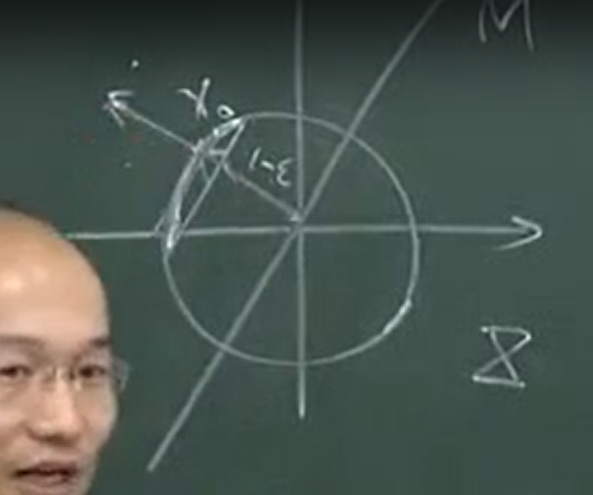 M
x₀
1-ε
X